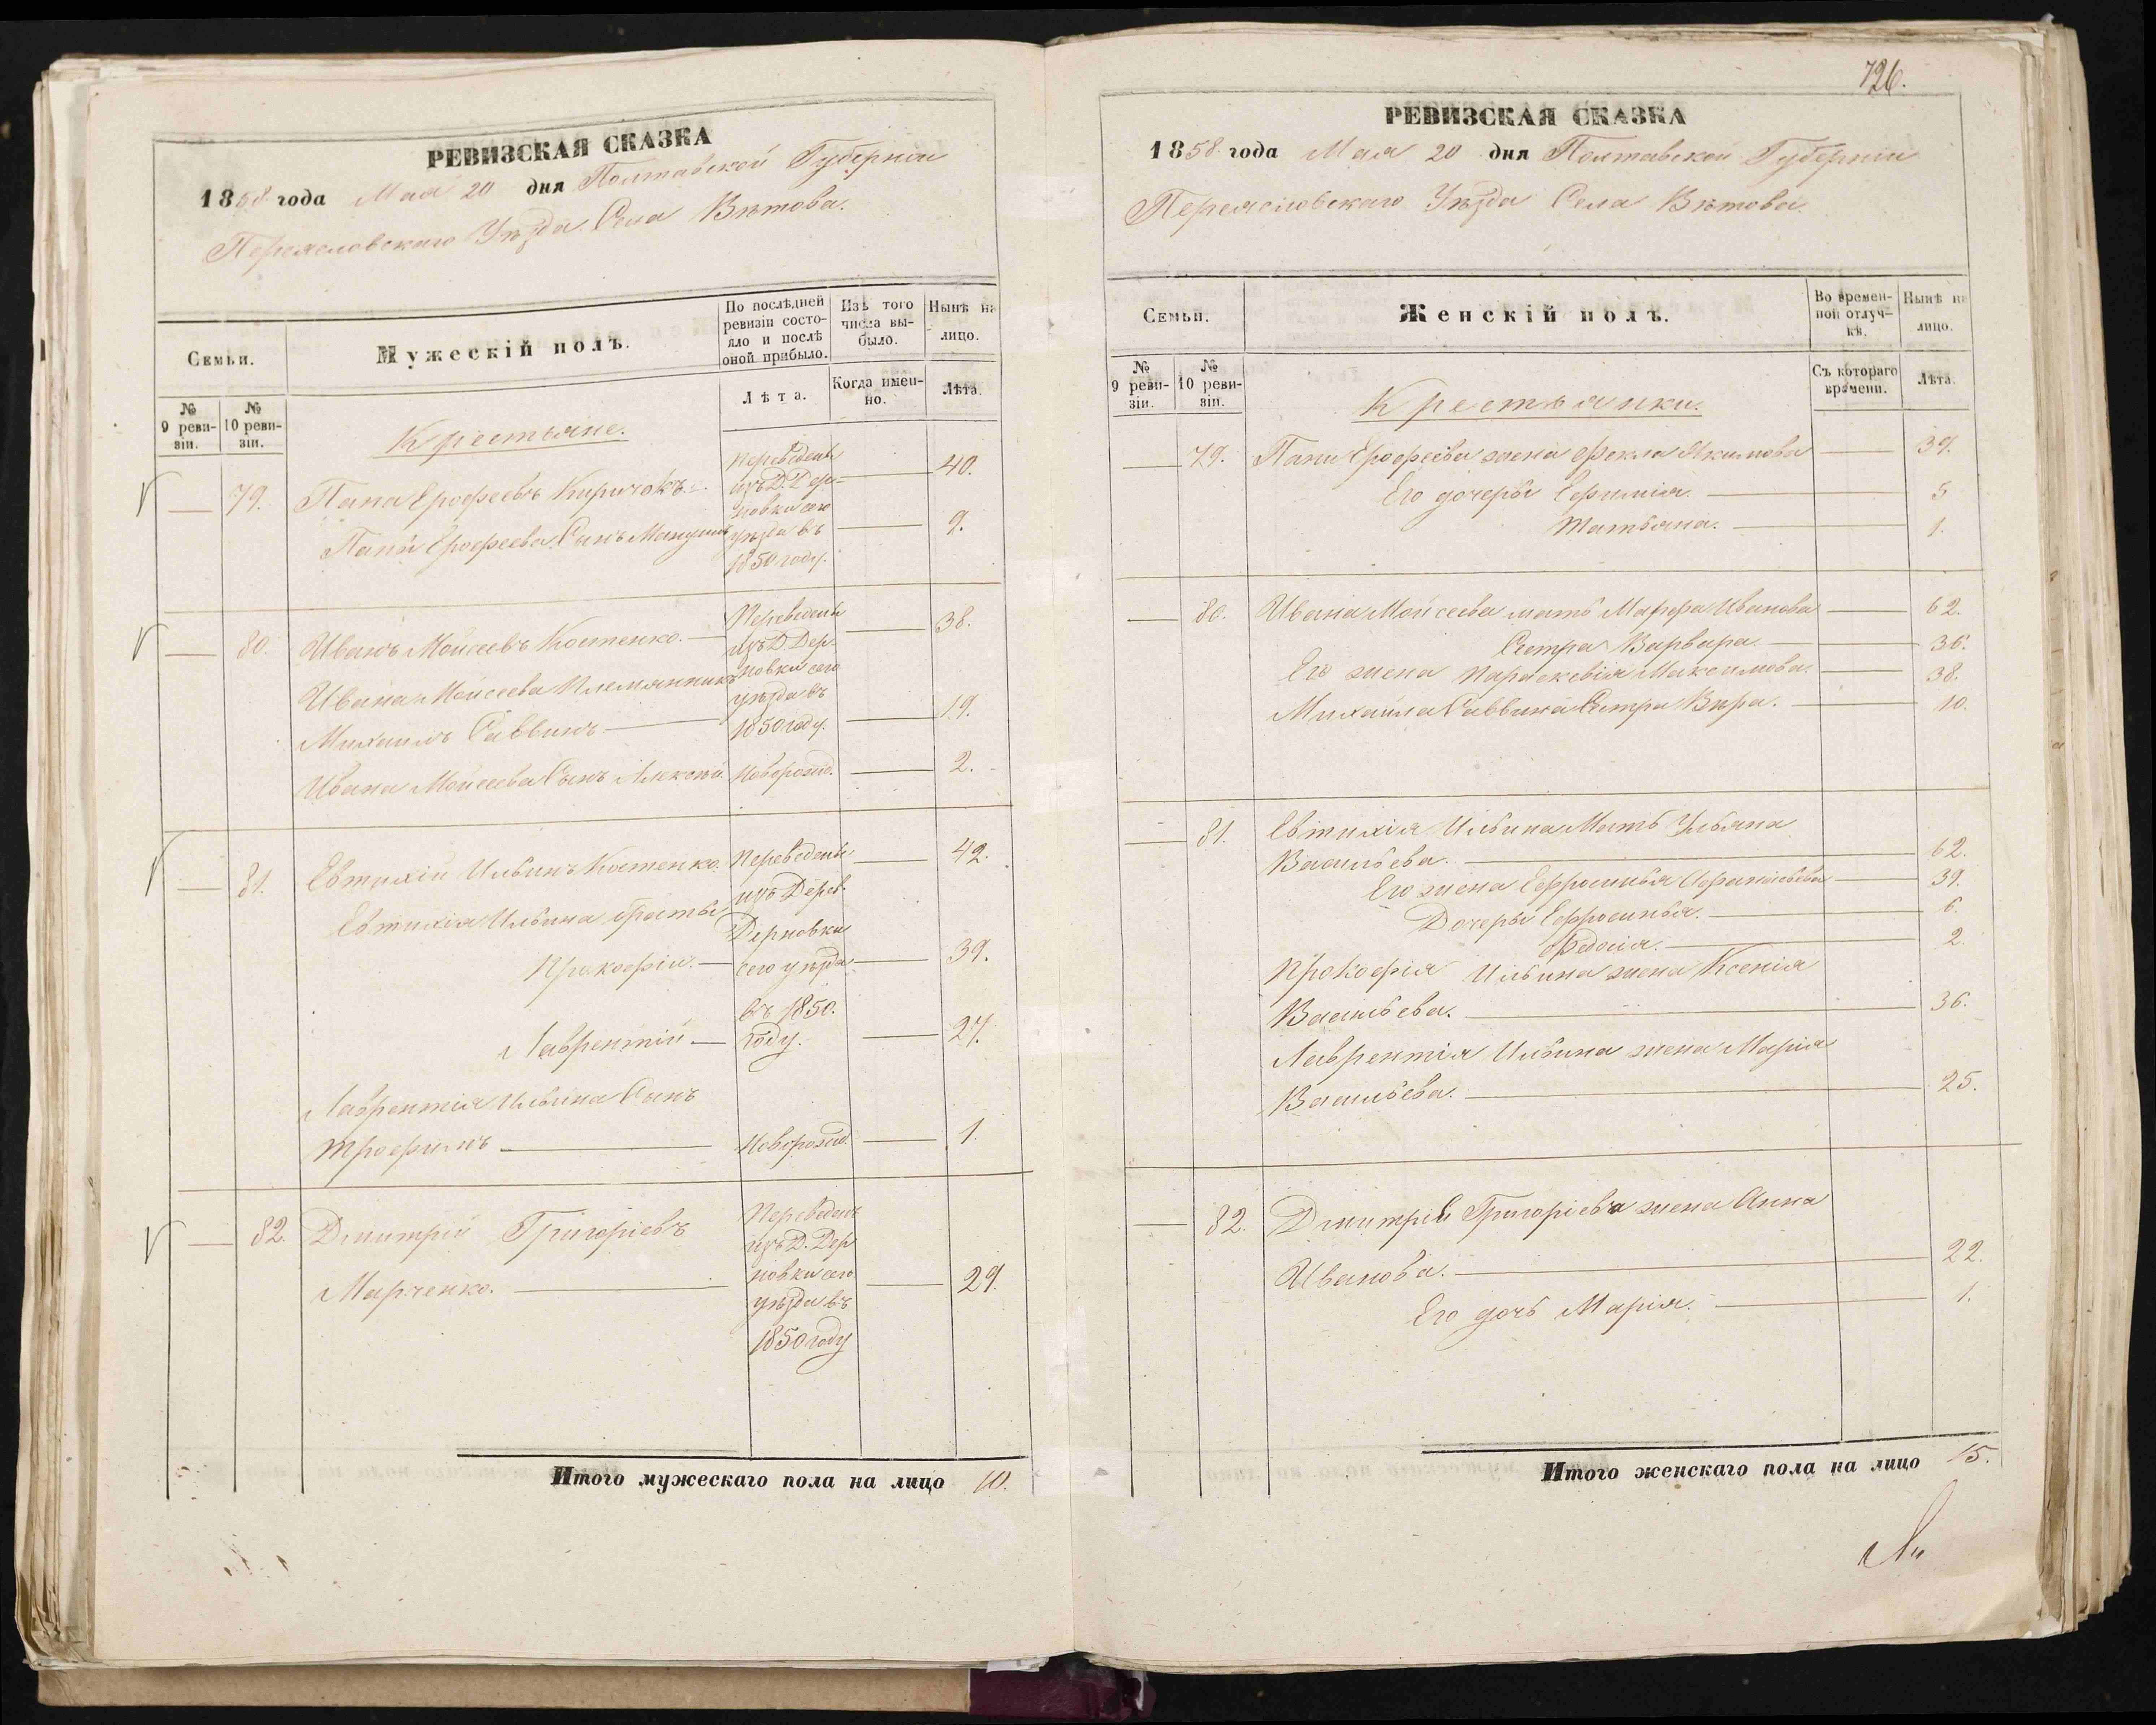 РЕВИЗСКАЯ СКАЗКА
1858 года Мая 20 дня Полтавской Губернии
Переясловскаго Уѣзда Села Вѣтова.
Семьи.
Мужескій полъ.
По послѣдней ревизіи состояло и послѣ оной прибыло.
Изъ того числа выбыло.
Нынѣ на лицо.
№ 9 ревизіи.
№ 10 ревизіи.
Лѣта.
Когда именно.
Лѣта.
Крестьяне.
79. Папа Ерофеевъ Киричокъ. 40.
Переведены изъ Д. Дерновки сего уѣзда въ 1850 году.
Папы Ерофеева Сынъ 9.
80. Иванъ Мойсеевъ Костенко. 38.
Переведены изъ Д. Дерновки сего уѣзда въ 1850 году.
Ивана Мойсеева Племянникъ
Михаилъ Саввинъ 19.
Ивана Мойсеева Сынъ Алексѣй Новорожд. 2.
81. Евтихій Ильинъ Костенко. 42.
Переведены изъ Дерев. Дерновки сего уѣзда въ 1850. году.
Евтихія Ильина братья
Прокофій. 39.
Лаврентій 27.
Лаврентія Ильина Сынъ
Трофимъ Новорожд. 1.
82. Дмитрій Григоріевъ
Марченко. 29.
Переведенъ изъ Д. Дерновки сего уѣзда въ 1850 году
Итого мужескаго пола на лицо 10.
726.
РЕВИЗСКАЯ СКАЗКА
1858 года Мая 20 дня Полтавской Губерніи
Переясловскаго Уѣзда Села Вѣтова.
Семьи.
Женскій полъ.
Во временной отлучкѣ.
Нынѣ на лицо.
№ 9 ревизіи.
№ 10 ревизіи.
Съ котораго времени.
Лѣта.
Крестьянки.
79. Папы Ерофеева жена Фекла Якимова 39.
Его дочери Ефимія. 5
Татьяна. 1.
80. Ивана Мойсеева мать Марфа Иванова 62.
Сестра Варвара. 36.
Его жена Параскевія Максимова. 38.
Михаила Саввина Сестра Вѣра. 10.
81. Евтихія Ильина Мать Ульяна
Васильева. 62.
Его жена Ефросинья Афанасьева 39.
Дочери Ефросинья. 6.
Федосія. 2.
Прокофія Ильина жена Ксенія
Васильева. 36.
Лаврентія Ильина жена Марія
Васильева. 25.
82. Дмитрія Григоріева жена Анна
Иванова. 22.
Его дочь Марія. 1.
Итого женскаго пола на лицо 15.